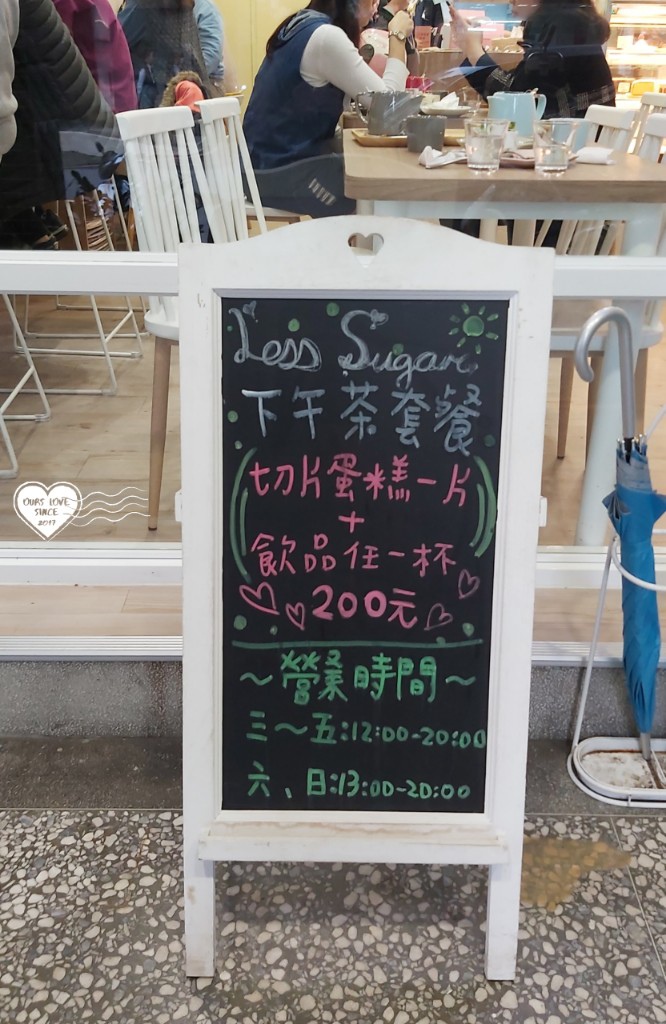 Less Sugar
下午茶套餐
切片蛋糕一片
+
飲品任一杯
200元
~營業時間~
三~五:12:00-20:00
六、日:13:00-20:00
OURS LOVE
SINCE
2017